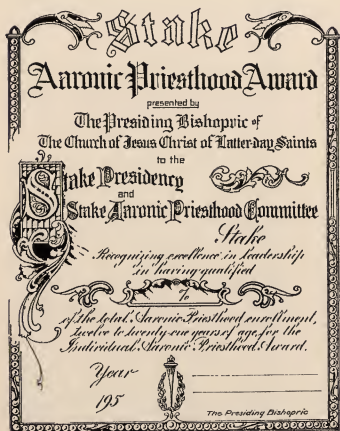 Stake
Aaronic Priesthood Award
presented by
The Presiding Bishopric of
The Church of Jesus Christ of Latter-day Saints
to the
Stake Presidency
and
Stake Aaronic Priesthood Committee
Stake
Recognizing excellence in leadership
in having qualified
%
of the total Aaronic Priesthood enrollment,
twelve to twenty-one years of age, for the
Individual Aaronic Priesthood Award.
Year
195
The Presiding Bishopric